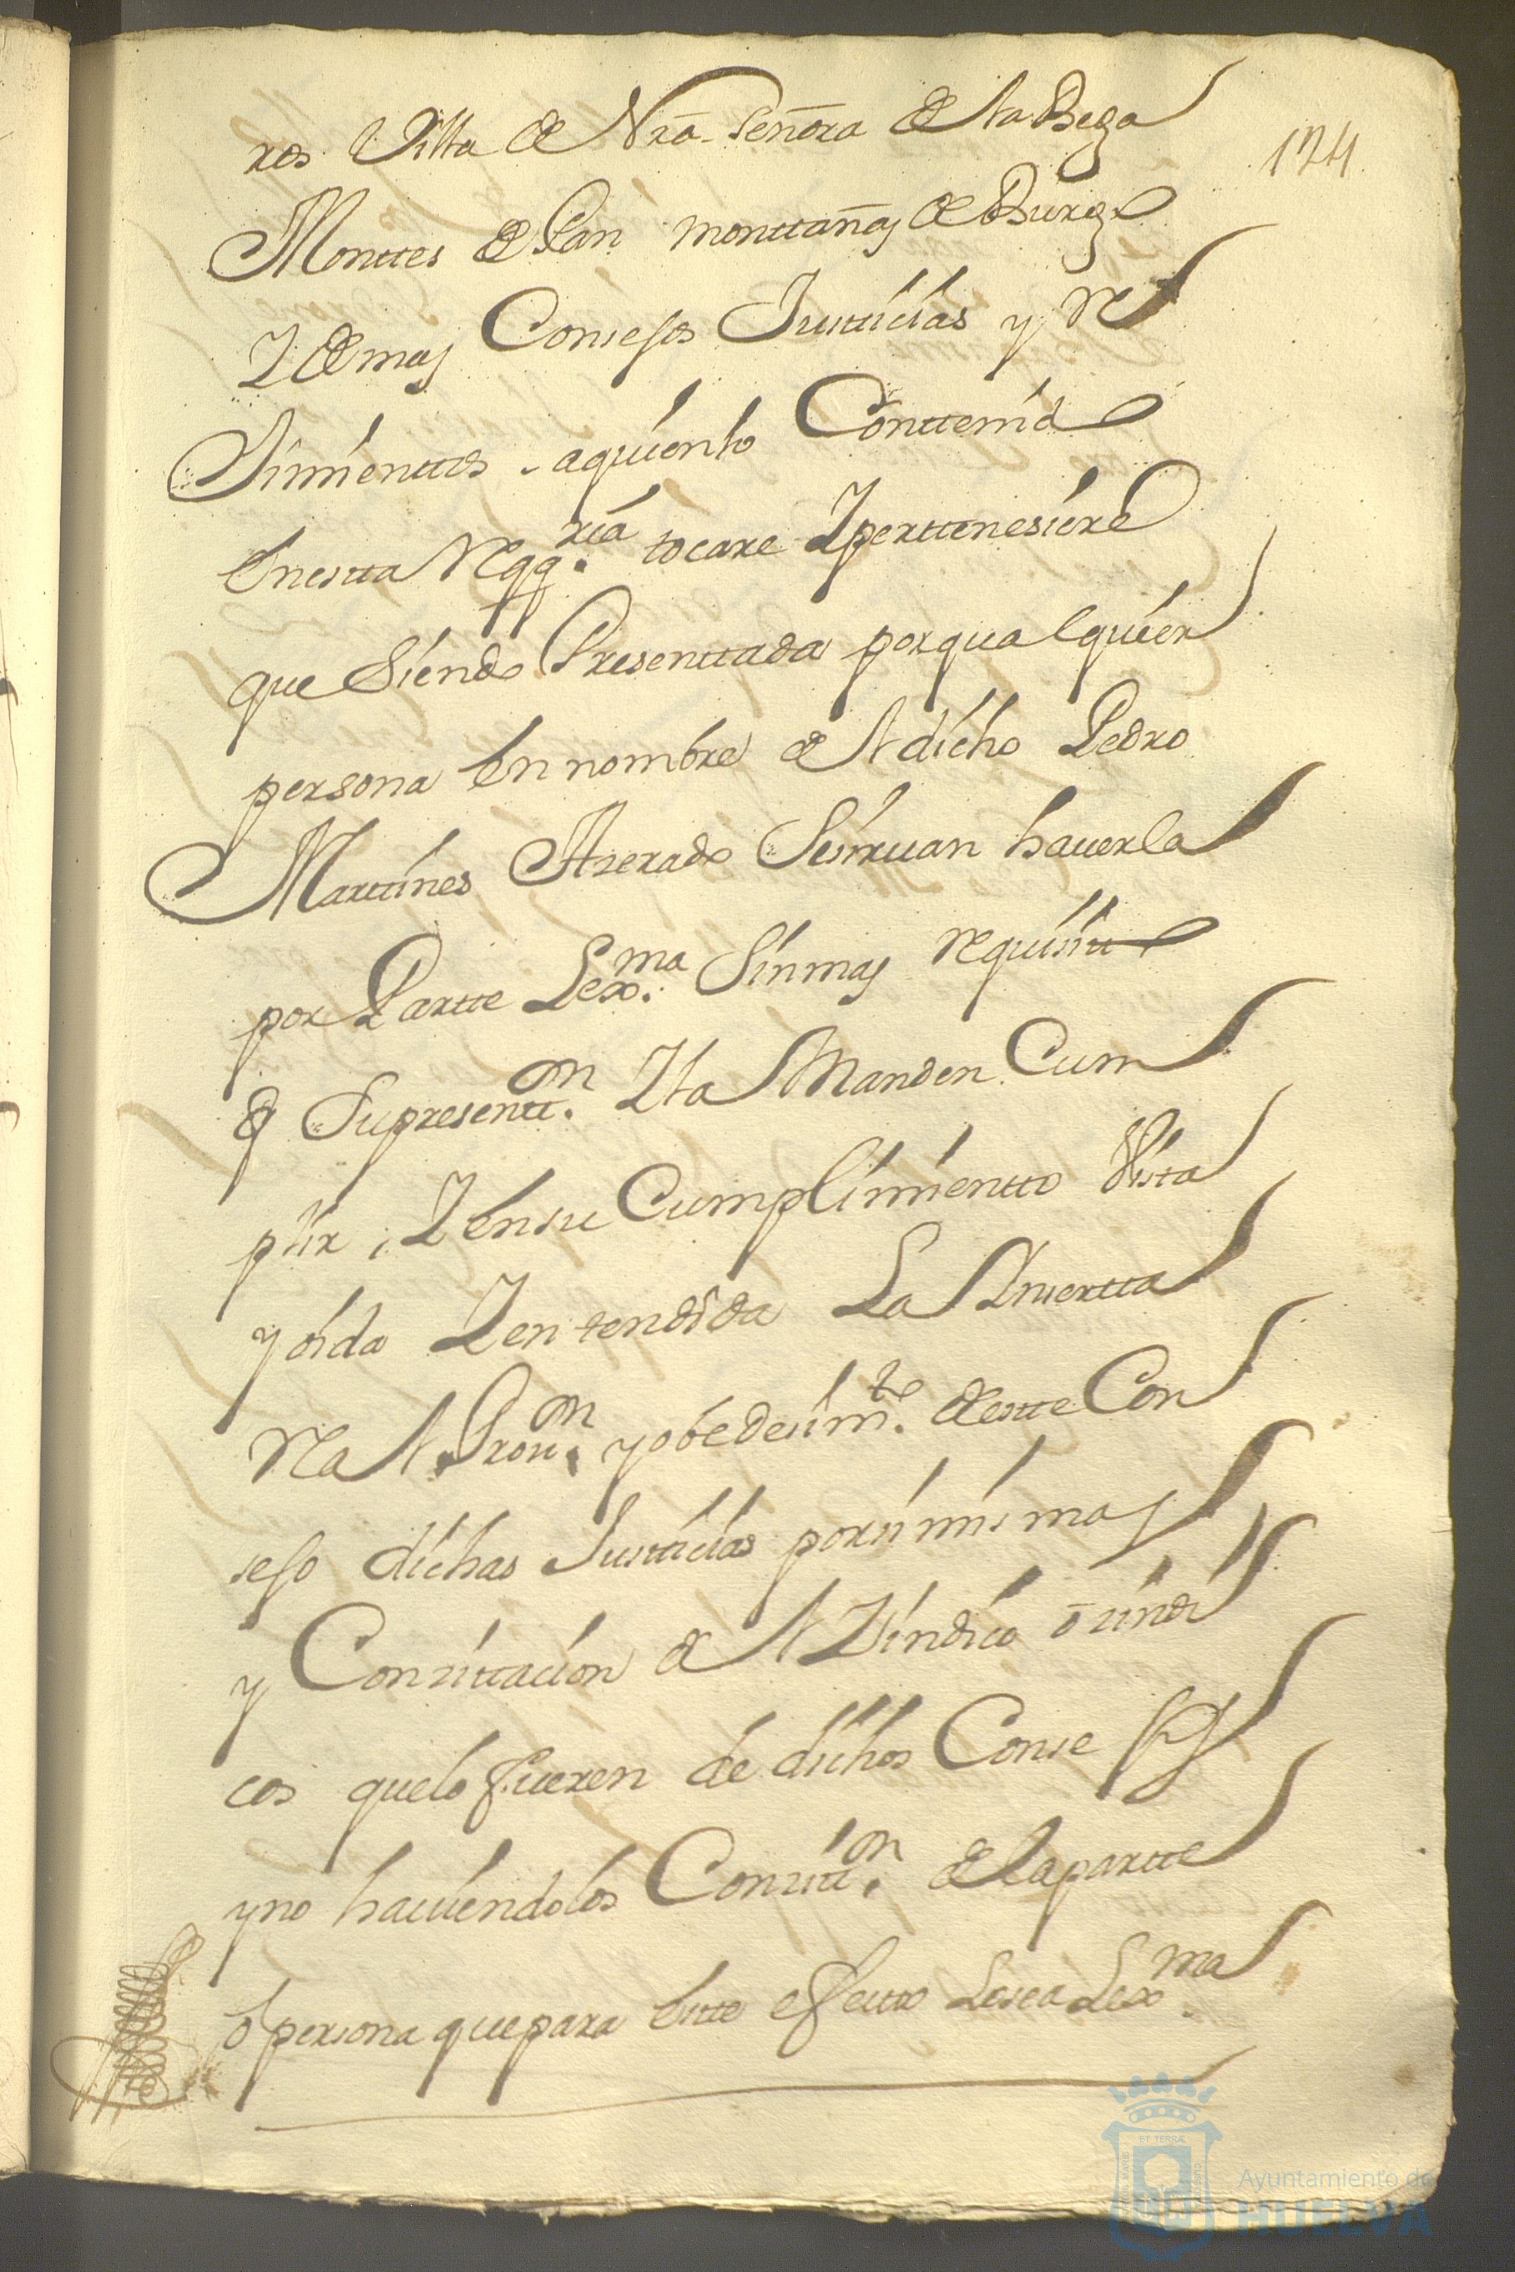 ros Villa de Nrã Señora de la Bega
174
Monttes de Pan monttañas de Burgo
Y demas Consejos Justticias y Re
Jimienttos aquien lo Conttenido
En estta Reqq.ria tocare Y perttenesiere
que siendo Presenttada por qualquier
persona En nombre del dicho Pedro
Marttines Azerado Se sirvan haverla
por Partte Lex.ma Sin mas requisitto
q Su presentt.on Y la Manden Cum
plir, Y en su Cumplimientto Vista
y oida Y entendida La Ynsertta
Real Prov.on y obedesim.to de estte Con
sejo dichas Justticias por si mismas
y Consittasion del Zindico o sindi
cos que lo fueren de dichos Consejos
y no haviendolos Consitt.on de la partte
o persona que para Estte efectto Le sea Lex.ma
Ayuntamiento de
HUELVA